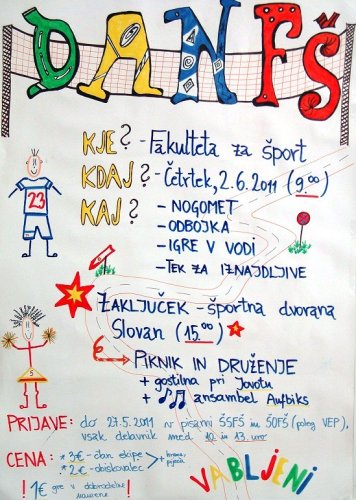 DAN FŠ
KJE? - Fakulteta za šport
KDAJ? - Četrtek, 2.6.2011 (9.00)
KAJ? - NOGOMET
- ODBOJKA
- IGRE V VODI
- TEK ZA IZNAJDLJIVE
23
ZAKLJUČEK - športna dvorana
Slovan (15.00)
S
PIKNIK IN DRUŽENJE
+ gostilna pri Jovotu
+ ansambel Aufbiks
PRIJAVE: do 27.5.2011 v pisarni ŠSFŠ in ŠOFŠ (poleg VEP),
vsak delavnik med 10. in 13. uro
CENA: * 3€ - član ekipe
* 2€ - obiskovalec
+ hrana,
pijača
! 1€ gre v dobrodelne
namene!
VABLJENI